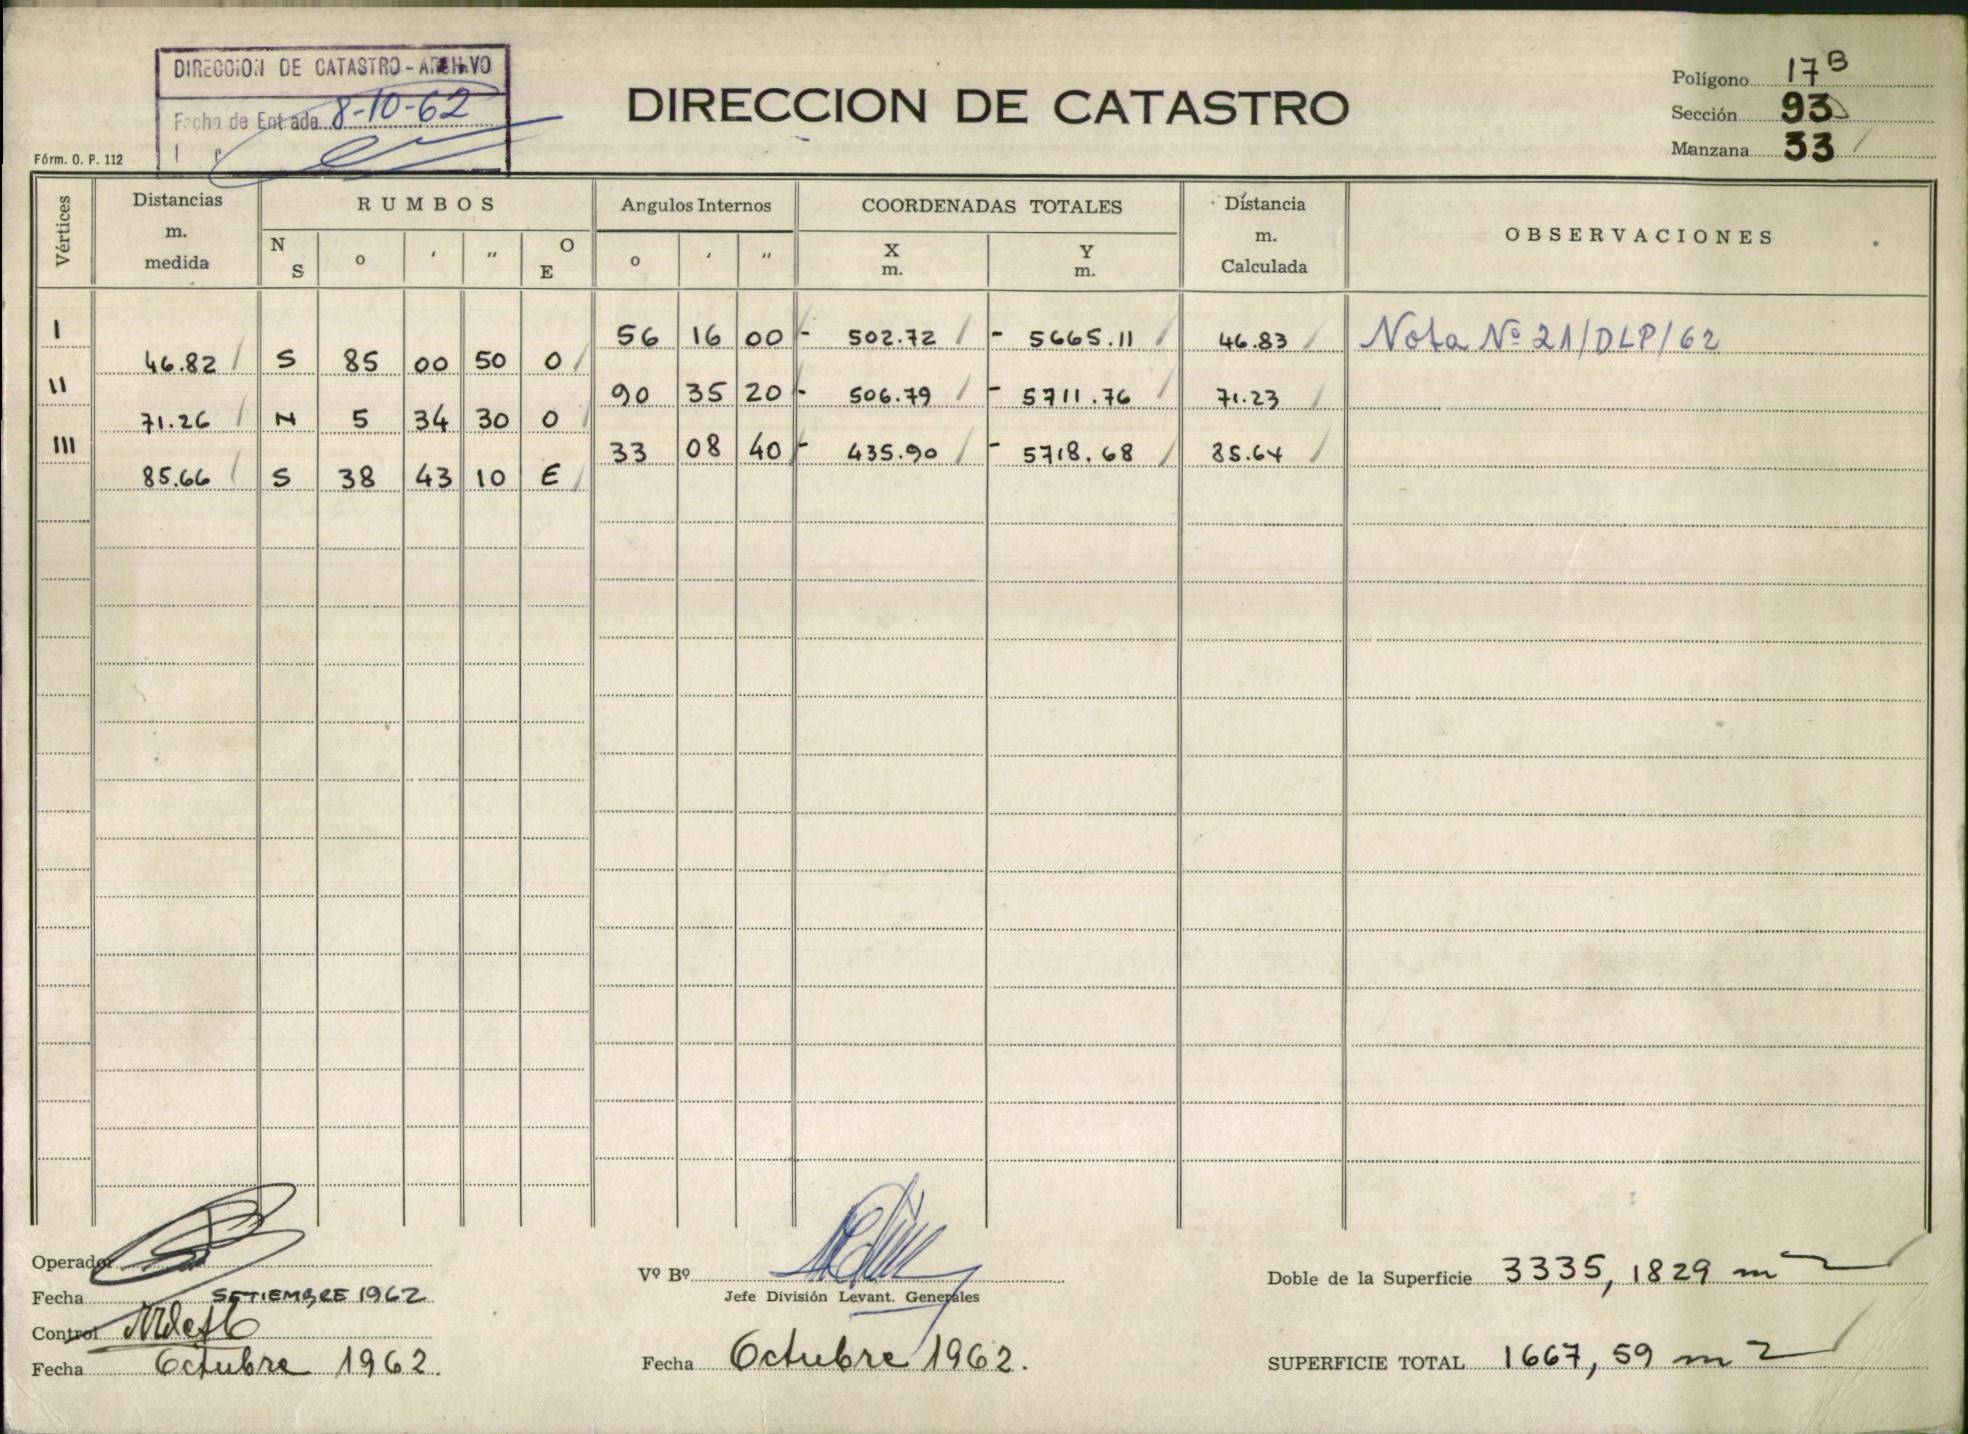 DIRECCION DE CATASTRO - ARCHIVO
Fecha de Entrada 8-10-62
Fórm. O. P. 112
DIRECCION DE CATASTRO
Polígono 17 B
Sección 93
Manzana 33
Vértices
Distancias m. medida
RUMBOS
Angulos Internos
COORDENADAS TOTALES
Distancia m. Calculada
OBSERVACIONES
N S o ' " O E o ' " X m. Y m.
I 56 16 00 - 502.72 - 5665.11 46.83 Nota Nº 21/DLP/62
46.82 S 85 00 50 O
II 90 35 20 - 506.79 - 5711.76 71.23
71.26 N 5 34 30 O
III 33 08 40 - 435.90 - 5718.68 85.64
85.66 S 38 43 10 E
Operador
Fecha SETIEMBRE 1962
Control
Fecha Octubre 1962.
Vº Bº
Jefe División Levant. Generales
Fecha Octubre 1962.
Doble de la Superficie 3335,1829 m2
SUPERFICIE TOTAL 1667,59 m2